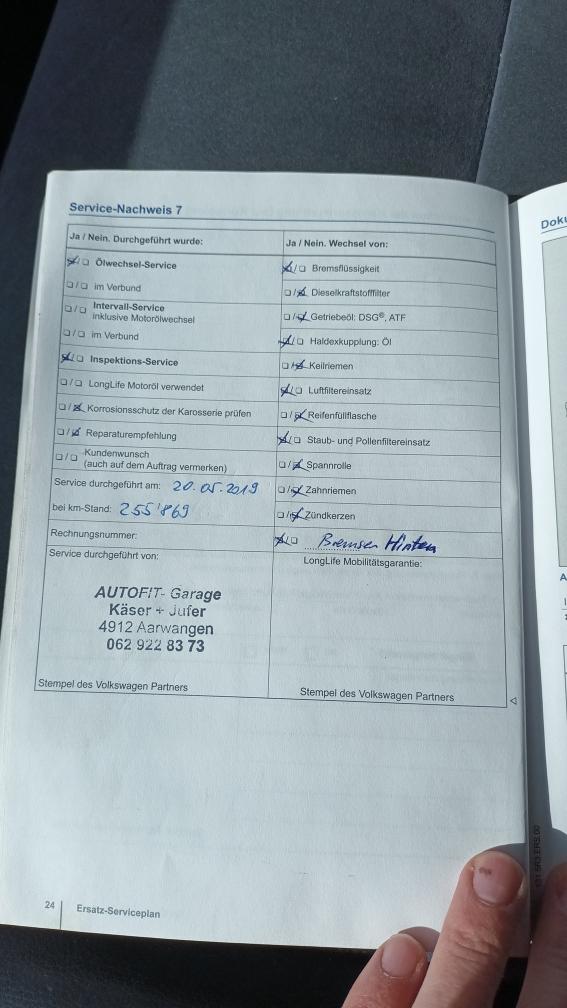 Service-Nachweis 7
Ja / Nein. Durchgeführt wurde:
☒/☐ Ölwechsel-Service
☐/☐ im Verbund
☐/☐ Intervall-Service
inklusive Motorölwechsel
☐/☐ im Verbund
☒/☐ Inspektions-Service
☐/☐ LongLife Motoröl verwendet
☐/☒ Korrosionsschutz der Karosserie prüfen
☐/☒ Reparaturempfehlung
☐/☐ Kundenwunsch
(auch auf dem Auftrag vermerken)
Service durchgeführt am: 20.05.2019
bei km-Stand: 255'869
Rechnungsnummer:
Service durchgeführt von:
AUTOFIT- Garage
Käser + Jufer
4912 Aarwangen
062 922 83 73
Stempel des Volkswagen Partners
Ja / Nein. Wechsel von:
☒/☐ Bremsflüssigkeit
☐/☒ Dieselkraftstofffilter
☐/☒ Getriebeöl: DSG®, ATF
☒/☐ Haldexkupplung: Öl
☐/☒ Keilriemen
☒/☐ Luftfiltereinsatz
☐/☒ Reifenfüllflasche
☒/☐ Staub- und Pollenfiltereinsatz
☐/☒ Spannrolle
☐/☒ Zahnriemen
☐/☒ Zündkerzen
☒/☐ Bremsen Hinten
LongLife Mobilitätsgarantie:
Stempel des Volkswagen Partners
24
Ersatz-Serviceplan
Doku